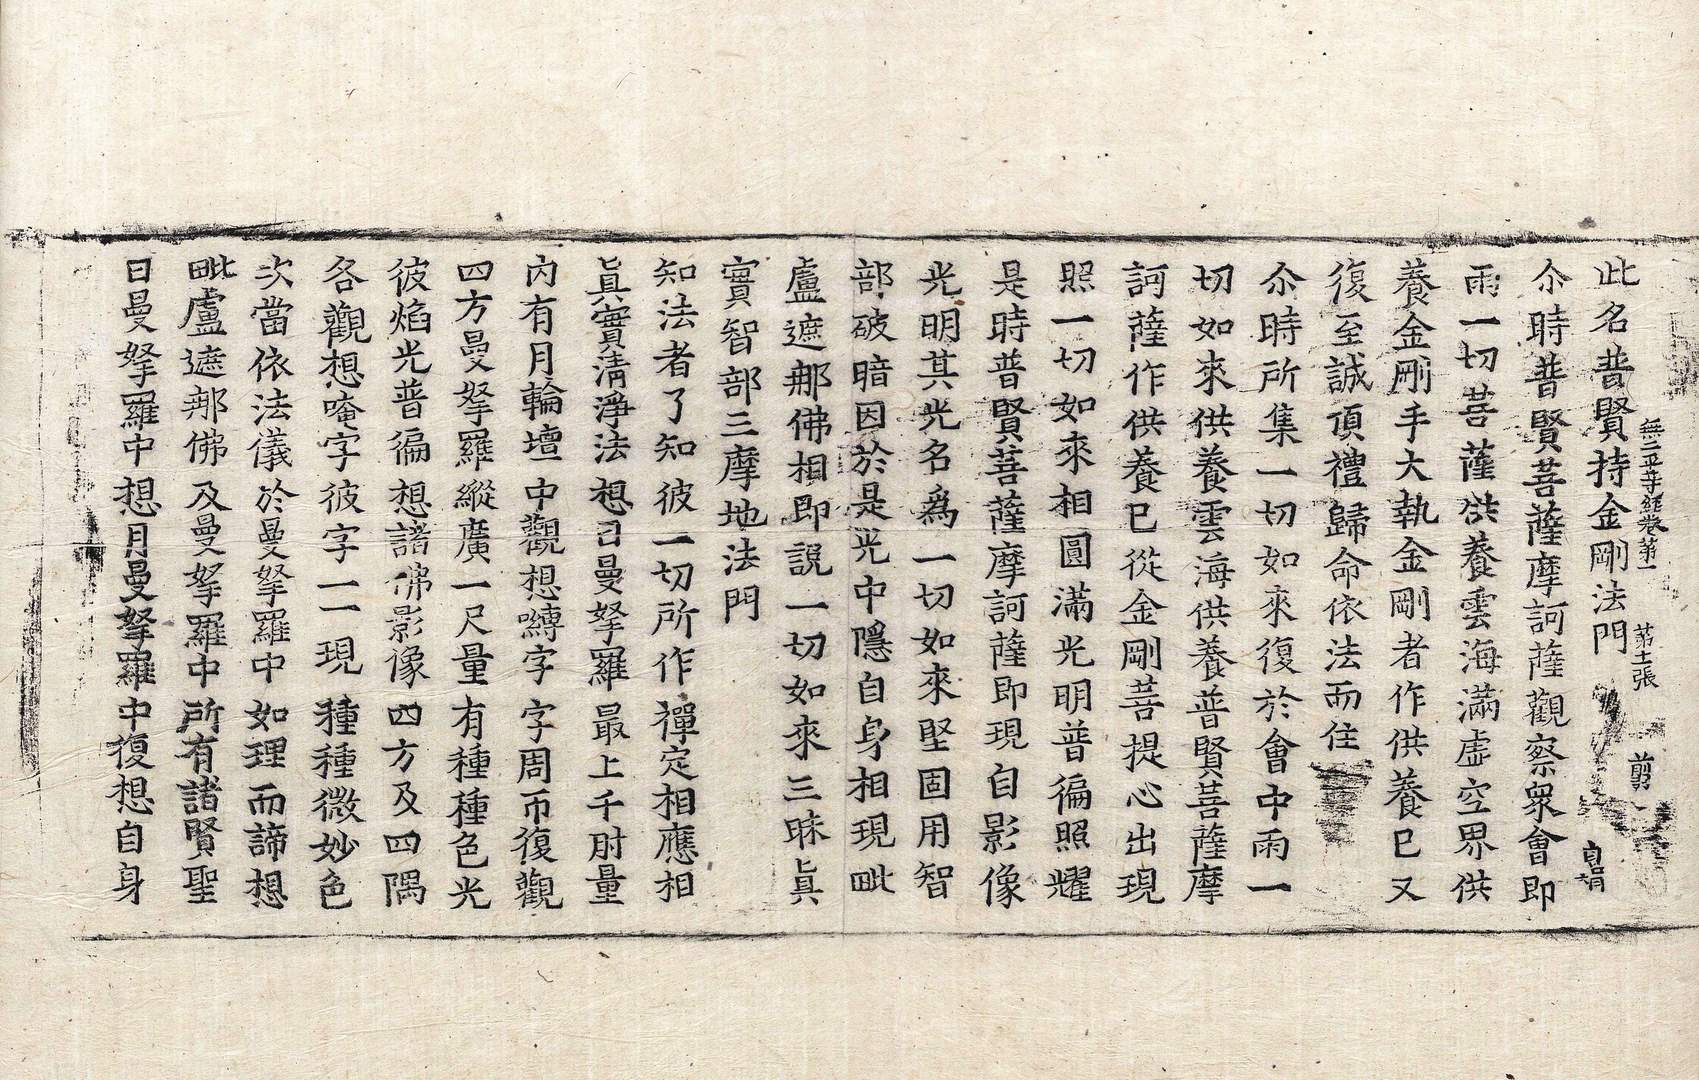 無二平等經卷第一 第十一張 剪
此名普賢持金剛法門
尒時普賢菩薩摩訶薩觀察衆會即
雨一切菩薩供養雲海滿虛空界供
養金剛手大執金剛者作供養已又
復至誠頂禮歸命依法而住
尒時所集一切如來復於會中雨一
切如來供養雲海供養普賢菩薩摩
訶薩作供養已從金剛菩提心出現
照一切如來相圓滿光明普徧照耀
是時普賢菩薩摩訶薩即現自影像
光明其光名爲一切如來堅固用智
部破暗因於是光中隱自身相現毗
盧遮那佛相即說一切如來三昧眞
實智部三摩地法門
知法者了知彼一切所作禪定相應相
眞實清淨法想日曼拏羅最上千肘量
內有月輪壇中觀想嚩字字周帀復觀
四方曼拏羅縱廣一尺量有種種色光
彼焰光普徧想諸佛影像四方及四隅
各觀想唵字彼字一一現種種微妙色
次當依法儀於曼拏羅中如理而諦想
毗盧遮那佛及曼拏羅中所有諸賢聖
日曼拏羅中想月曼拏羅中復想自身